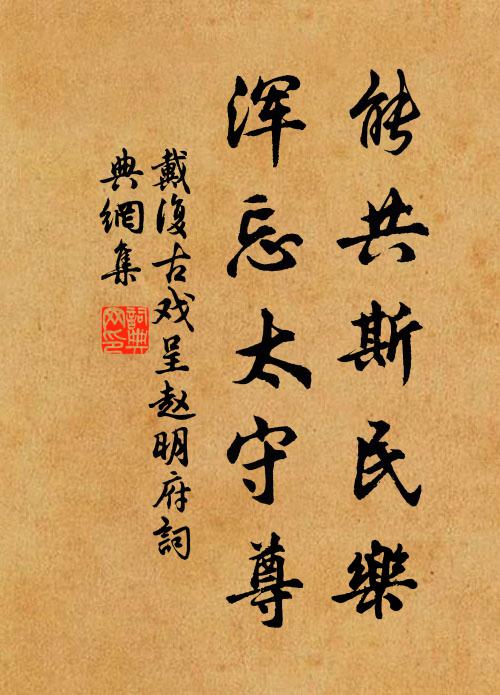 能共斯民樂
浑忘太守尊
戴復古戏呈赵明府詞
典網集
詞典网印